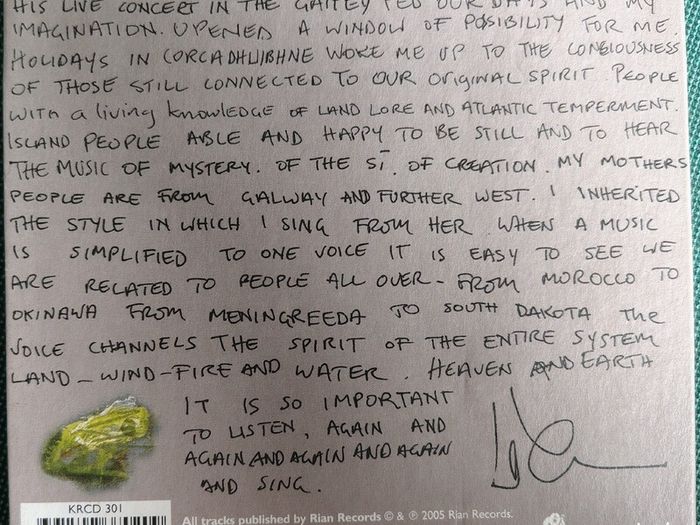 HIS LIVE CONCERT IN THE GAITEY FED OUR DAYS AND MY
IMAGINATION. UPENED A WINDOW OF POSIBILITY FOR ME.
HOLIDAYS IN CORCA DHUIBHNE WOKE ME UP TO THE CONSIOUSNESS
OF THOSE STILL CONNECTED TO OUR ORIGINAL SPIRIT. PEOPLE
WITH a living knowledge OF LAND LORE AND ATLANTIC TEMPERMENT.
ISLAND PEOPLE ABLE AND HAPPY TO BE STILL AND TO HEAR
THE MUSIC OF MYSTERY. OF THE SÍ. OF CREATION. MY MOTHERS
PEOPLE ARE FROM GALWAY AND FURTHER WEST. I INHERITED
THE STYLE IN WHICH I SING FROM HER. WHEN A MUSIC
IS SIMPLIFIED TO ONE VOICE IT IS EASY TO SEE WE
ARE RELATED TO PEOPLE ALL OVER - FROM MOROCCO TO
OKINAWA FROM MENINGREEDA TO SOUTH DAKOTA THE
VOICE CHANNELS THE SPIRIT OF THE ENTIRE SYSTEM
LAND - WIND - FIRE AND WATER. HEAVEN AND EARTH
IT IS SO IMPORTANT
TO LISTEN, AGAIN AND
AGAIN AND AGAIN AND AGAIN
AND SING.
KRCD 301
All tracks published by Rian Records © & ℗ 2005 Rian Records.